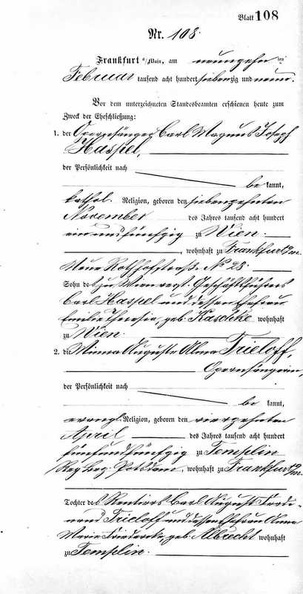 Blatt 108
Nr. 108.
Frankfurt a/Main, am neunzehn ten
Februar tausend acht hundert siebenzig und neun.
Vor dem unterzeichneten Standesbeamten erschienen heute zum
Zweck der Eheschließung:
1. der Opernsänger Carl Magnus Joseph
Haspel,
der Persönlichkeit nach
be kannt,
kathol. Religion, geboren den siebenzehnten
November des Jahres tausend acht hundert
ein und fünfzig zu Wien
, wohnhaft zu Frankfurt a/M.
Neue Rothhofstraße No 23.
Sohn des zu Wien Geschäftsführers
Carl Haspel und dessen Ehefrau
Emilie Theresia, geb. wohnhaft
zu Wien
2. die Anna Auguste Alma Frieloff
Opernsängerin,
der Persönlichkeit nach
be kannt,
evangl. Religion, geboren den vierzehnten
April des Jahres tausend acht hundert
fünf und fünfzig zu Templin
Reg. Bez. Potsdam, wohnhaft zu Frankfurt a/M.
Tochter des Rentiers Carl August Ferdi-
nand Frieloff und dessen Ehefrau
Marie Friederike, geb. Albrecht wohnhaft
zu Templin.